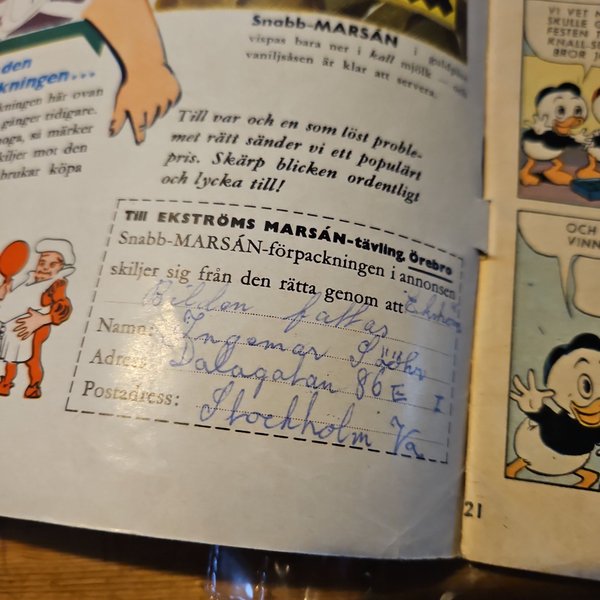 Snabb-MARSÁN i
vispas bara ner i kall mjölk – och
vaniljsåsen är klar att servera.
den
kningen...
kningen här ovan
gånger tidigare.
noga, så märker
skiljer mot den
brukar köpa
Till var och en som löst proble-
met rätt sänder vi ett populärt
pris. Skärp blicken ordentligt
och lycka till!
Till EKSTRÖMS MARSÁN-tävling, Örebro
Snabb-MARSÁN-förpackningen i annonsen
skiljer sig från den rätta genom att
Bilden fattas
Namn: Ingemar
Adress: Dalagatan 86 E I
Postadress: Stockholm Va
21
VI VET
SKULLE
FESTEN
KNALL-
BROR
OCH
VINN